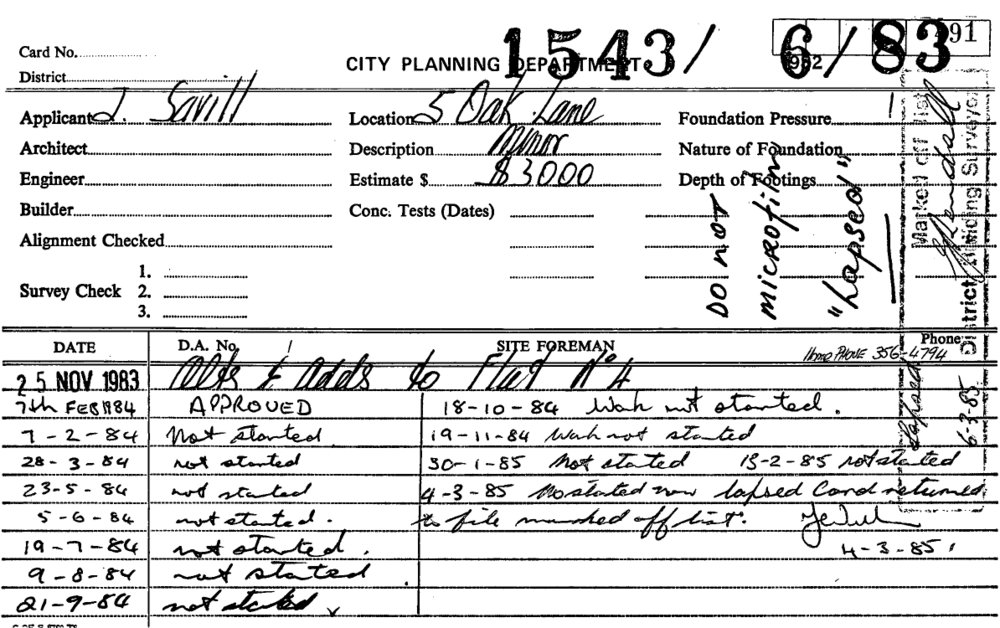 1543/ 6/83
91
Card No.
CITY PLANNING DEPARTMENT
District
Applicant J. Savill Location 5 Oak Lane Foundation Pressure
Architect Description Minor Nature of Foundation
Engineer Estimate $ $3000 Depth of Footings
Builder Conc. Tests (Dates)
Alignment Checked
1.
Survey Check 2.
3.
DO NOT
MICROFILM
"Lapsed"
Marked off list
District Building Surveyor
DATE D.A. No. SITE FOREMAN Phone
Home PHONE 356-4794
25 NOV 1983 Alts & Adds to Flat No 4
Lapsed
6-3-85
7th FEB 1984 APPROVED 18-10-84 Work not started.
7-2-84 Not started 19-11-84 Work not started
28-3-84 not started 30-1-85 Not started 13-2-85 not started
23-5-84 not started 4-3-85 No started now lapsed Card returned
5-6-84 not started. to file marked off list.
19-7-84 not started. 4-3-85.
9-8-84 not started.
21-9-84 not started